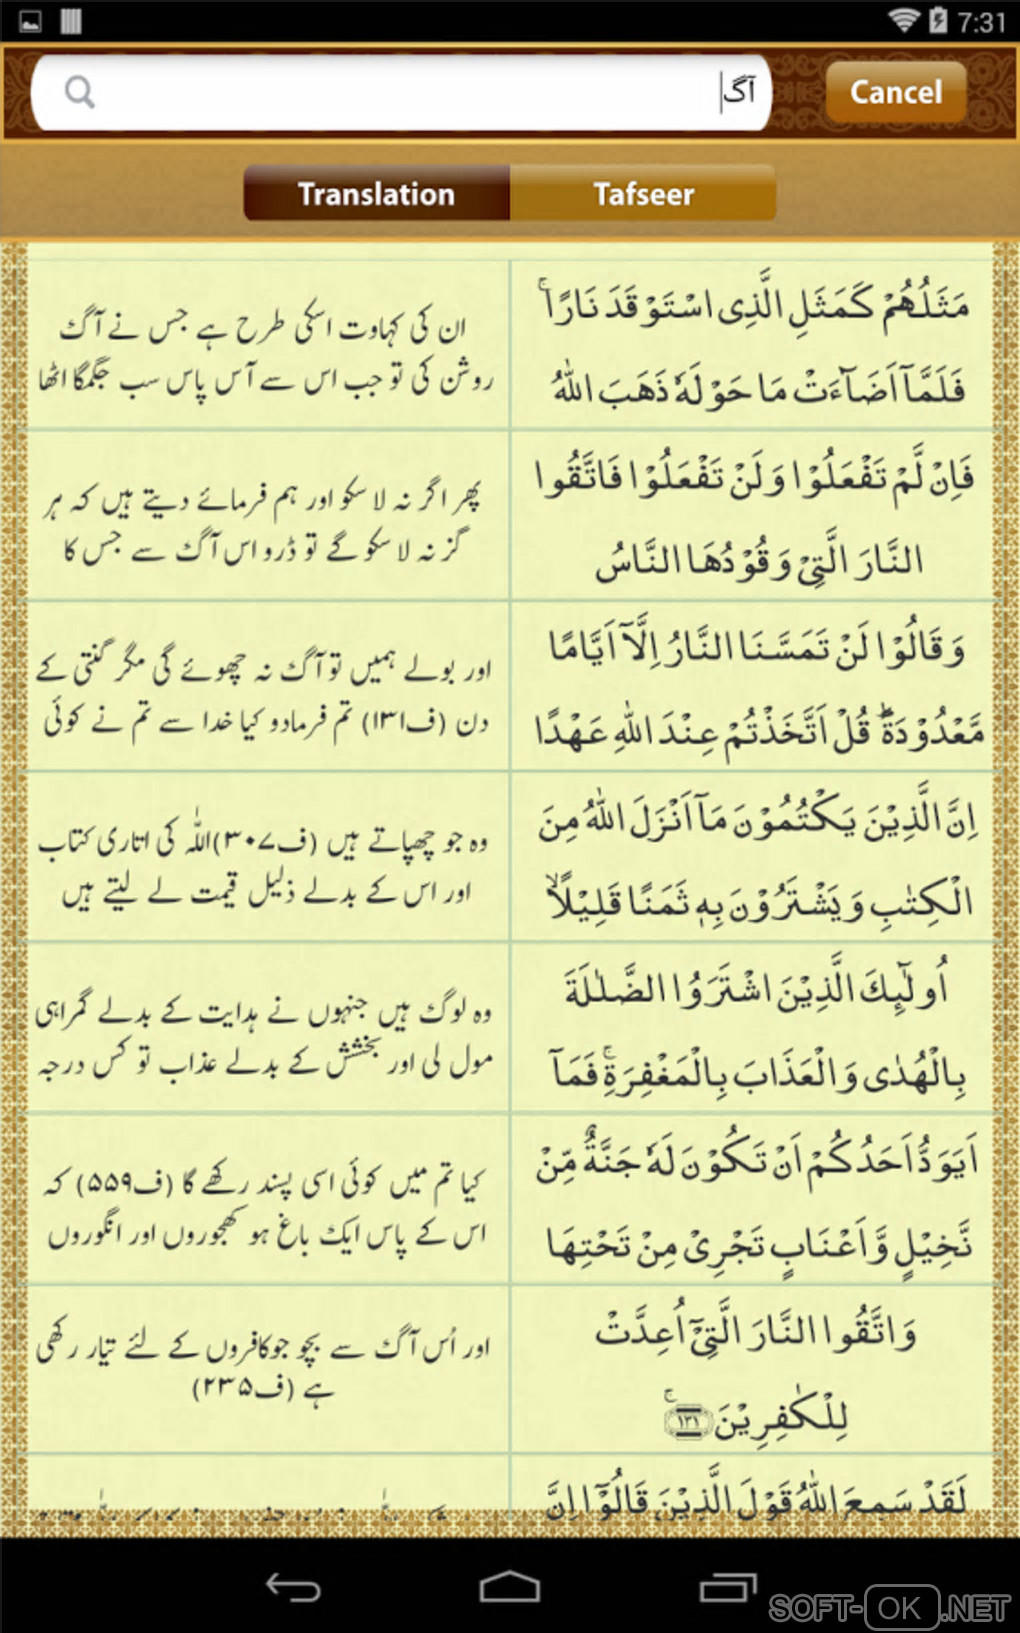 7:31
آگ
Cancel
Translation
Tafseer
مَثَلُهُمْ كَمَثَلِ الَّذِی اسْتَوْقَدَ نَارًاۚ
فَلَمَّاۤ اَضَآءَتْ مَا حَوْلَهٗ ذَهَبَ اللّٰهُ
ان کی کہاوت اسکی طرح ہے جس نے آگ
روشن کی تو جب اس سے آس پاس سب جگمگا اٹھا
فَاِنْ لَّمْ تَفْعَلُوْا وَلَنْ تَفْعَلُوْا فَاتَّقُوا
النَّارَ الَّتِیْ وَقُوْدُهَا النَّاسُ
پھر اگر نہ لا سکو اور ہم فرمائے دیتے ہیں کہ ہر
گز نہ لا سکو گے تو ڈرو اس آگ سے جس کا
وَقَالُوْا لَنْ تَمَسَّنَا النَّارُ اِلَّاۤ اَیَّامًا
مَّعْدُوْدَةًؕ قُلْ اَتَّخَذْتُمْ عِنْدَ اللّٰهِ عَهْدًا
اور بولے ہمیں تو آگ نہ چھوئے گی مگر گنتی کے
دن (ف۱۳۱) تم فرمادو کیا خدا سے تم نے کوئی
اِنَّ الَّذِیْنَ یَكْتُمُوْنَ مَاۤ اَنْزَلَ اللّٰهُ مِنَ
الْكِتٰبِ وَیَشْتَرُوْنَ بِهٖ ثَمَنًا قَلِیْلًاۙ
وہ جو چھپاتے ہیں (ف۳۰۷)اللّٰہ کی اتاری کتاب
اور اس کے بدلے ذلیل قیمت لے لیتے ہیں
اُولٰٓىِٕكَ الَّذِیْنَ اشْتَرَوُا الضَّلٰلَةَ
بِالْهُدٰی وَالْعَذَابَ بِالْمَغْفِرَةِۚ فَمَاۤ
وہ لوگ ہیں جنہوں نے ہدایت کے بدلے گمراہی
مول لی اور بخشش کے بدلے عذاب تو کس درجہ
اَیَوَدُّ اَحَدُكُمْ اَنْ تَكُوْنَ لَهٗ جَنَّةٌ مِّنْ
نَّخِیْلٍ وَّاَعْنَابٍ تَجْرِیْ مِنْ تَحْتِهَا
کیا تم میں کوئی اسی پسند رکھے گا (ف۵۵۹) کہ
اس کے پاس ایک باغ ہو کھجوروں اور انگوروں
وَاتَّقُوا النَّارَ الَّتِیْۤ اُعِدَّتْ
لِلْكٰفِرِیْنَۚ ۱۳۱
اور اُس آگ سے بچو جوکافروں کے لئے تیار رکھی
ہے (ف۲۳۵)
لَقَدْ سَمِعَ اللّٰهُ قَوْلَ الَّذِیْنَ قَالُوْۤا اِنَّ
SOFT-OK.NET